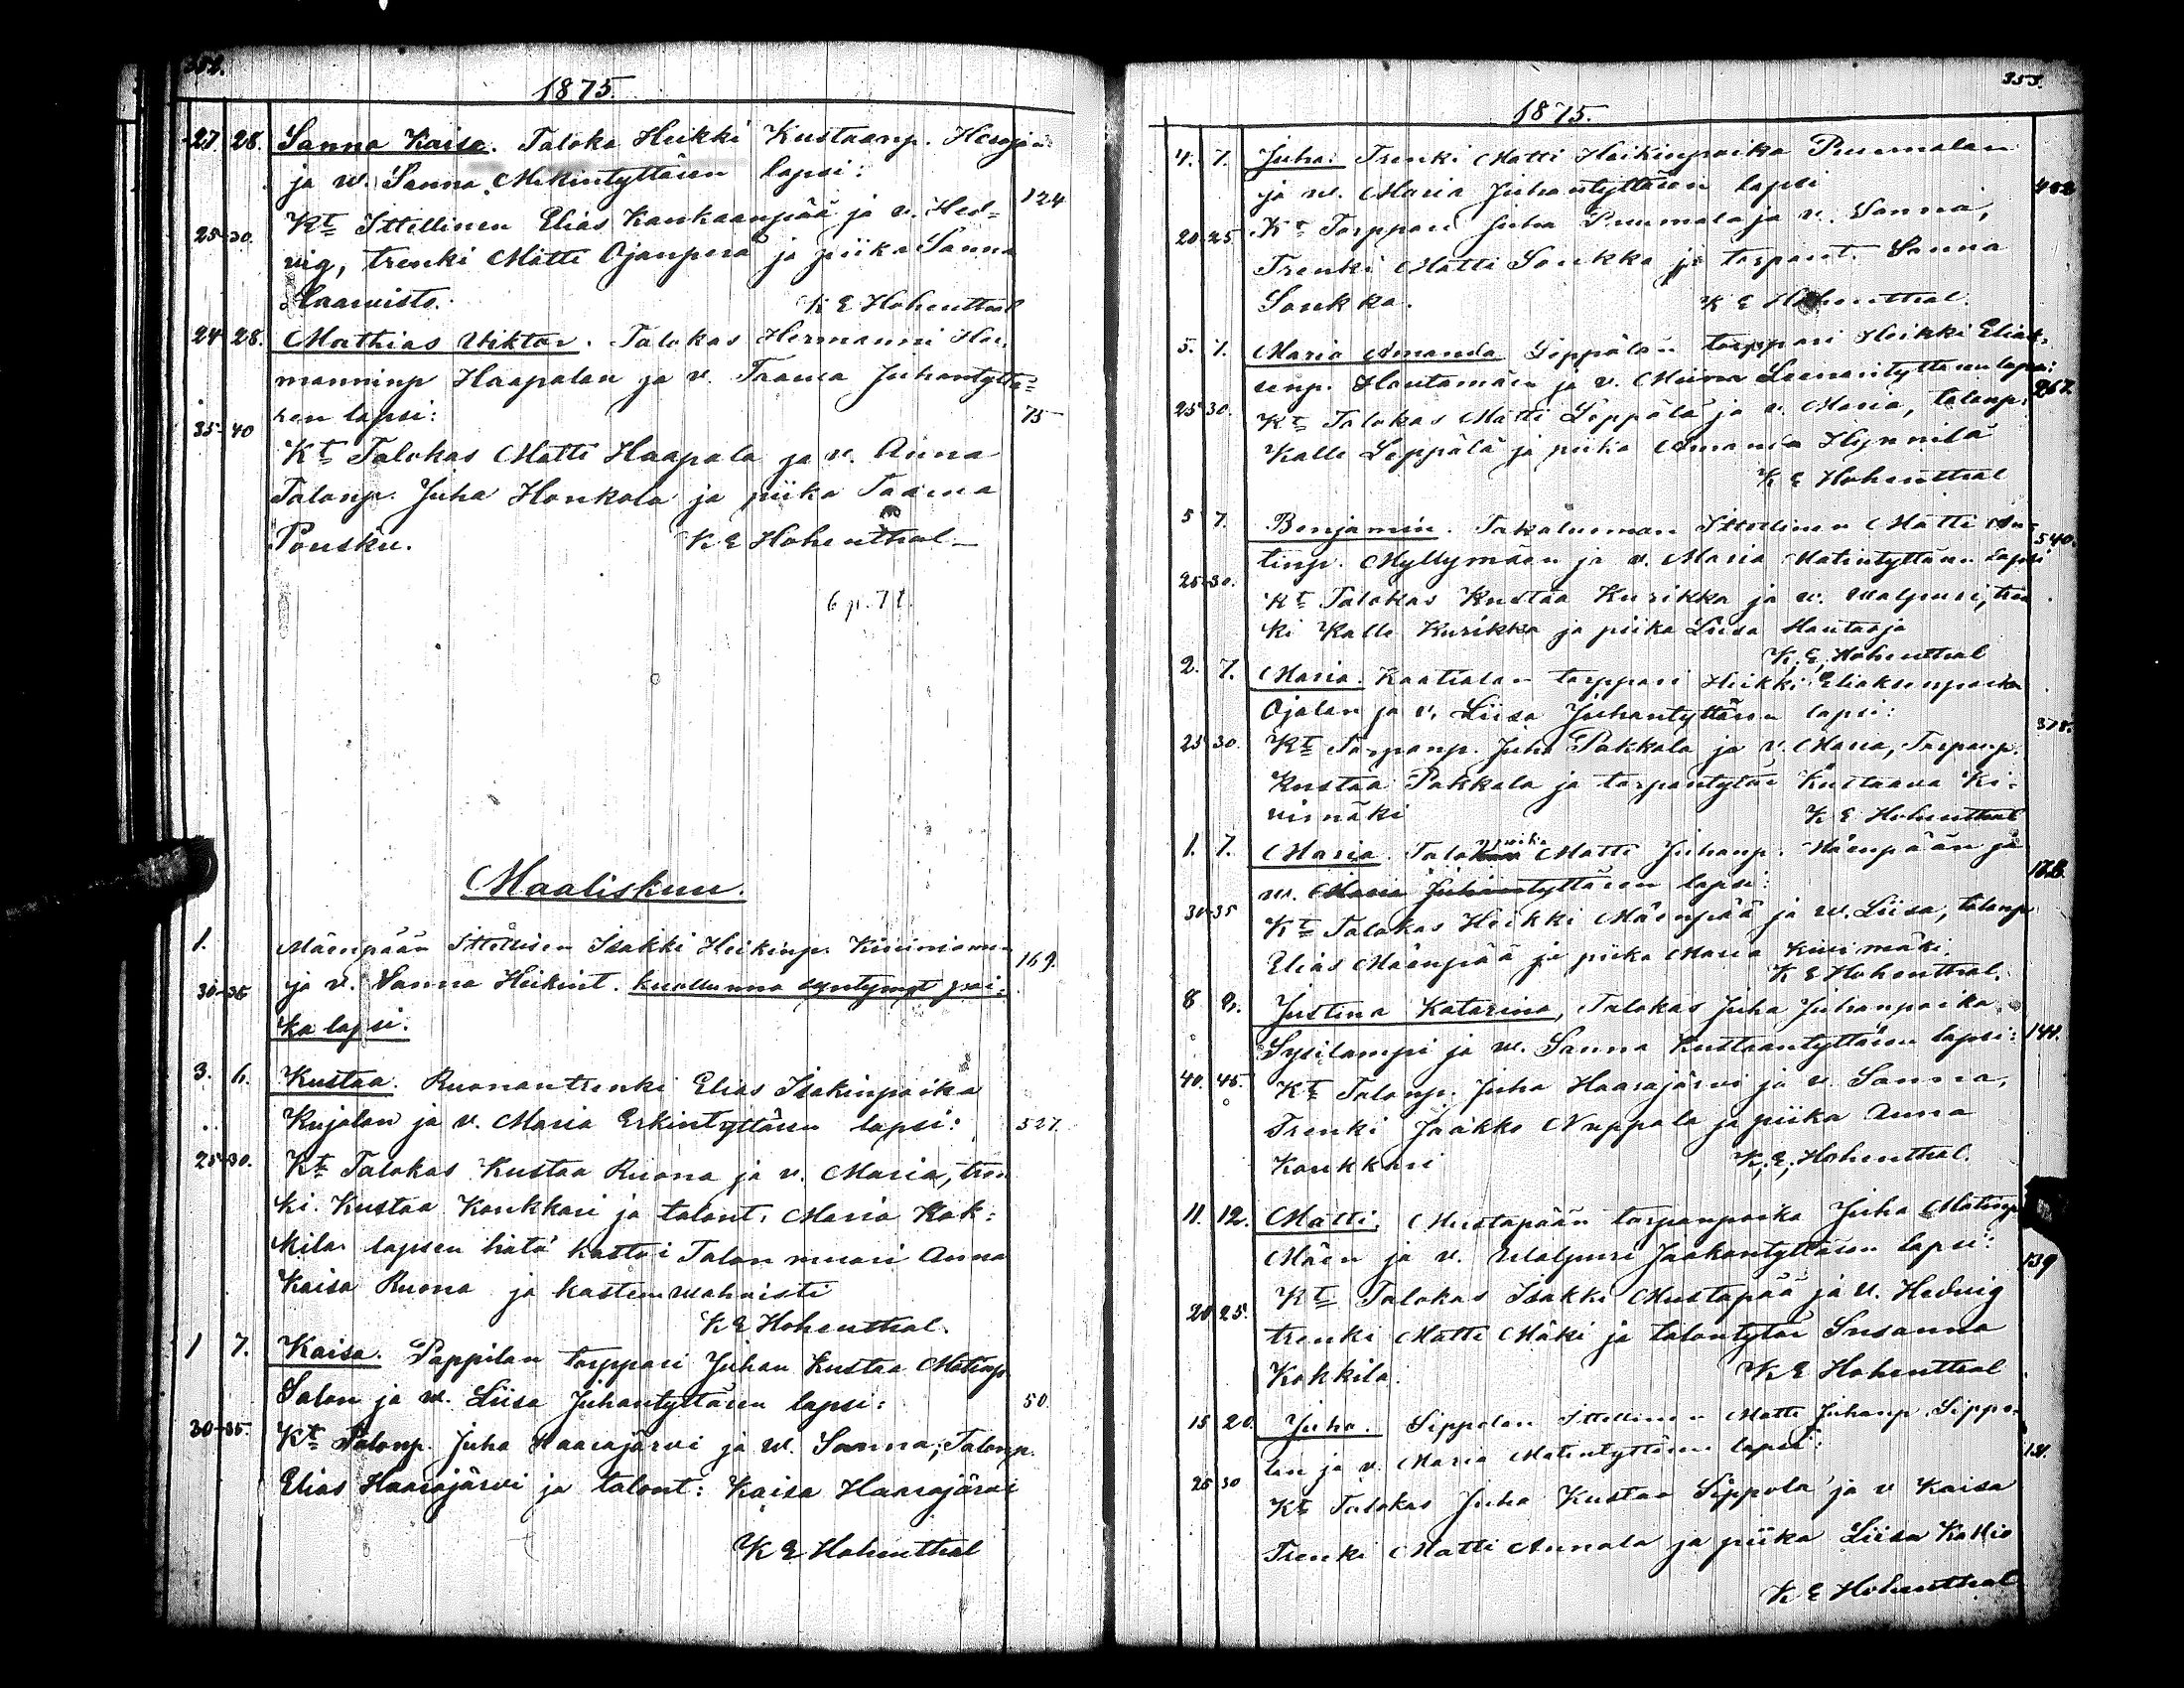 352.
1875.
27. 28. Sanna Kaisa. Taloka Heikki Kustaanp. Hesajän
ja w. Sanna Mikintyttären lapsi:
124
25-30. Kt Ittellinen Elias Kankaanpää ja v. Hed=
vig, trenki Matti Ojanperä ja piika Sanna
Saaristo. K E Hohenthal
24 28. Mathias Viktor. Talokas Hermanni Her,
manninp Haapalan ja v. Taava Juhantyttä=
ren lapsi: 75
35-40
Kt Talokas Matti Haapala ja v. Anna
Talonp. Juha Honkola ja piika Taava
Pousku. K E Hohenthal
6 p. 7 t.
Maaliskuu.
1. Mäenpään Ittellisen Isakki Heikinp. Kiviniemen
ja v. Sanna Heikint. kuollunna syntynyt poi= 169.
30-35
ka lapsi.
3. 6. Kustaa. Ruonan trenki Elias Isakinpoika
Kujalan ja v. Maria Erkintyttären lapsi: 527.
25-30. Kt Talokas Kustaa Ruona ja v. Maria, tren
ki. Kustaa Konkkari ja talont. Maria Kok=
kila. lapsen hätä kastoi Talon muori Anna
Kaisa Ruona ja kasteen wahvisti
K E Hohenthal.
1 7. Kaisa. Pappilan torppari Juhan Kustaa Matinp
Salon ja w. Liisa Juhantyttären lapsi: 50.
30-35. Kt Talonp. Juha Haarajärvi ja w. Sanna, Talonp.
Elias Haarajärvi ja talont: Kaisa Haarajärvi
K E Hohenthal
353.
1875.
4. 7. Juha. Trenki Matti Heikinpoika Puumalan
ja w. Maria Juhantyttären lapsi
20.25 Kt Torppari Juha Puumala ja v. Sanna,
Trenki Matti Soukka ja torparit. Sanna
Soukka. K E Hohenthal.
5. 7. Maria Amanda Leppälän torppari Heikki Eliak,
senp. Hautamäen ja v. Miina Leenarityttären lapsi: 267.
25 30. Kt Talokas Matti Leppälä ja v. Maria, talonp.
Kalle Leppälä ja piika Amanda Hynnilä
K E Hohenthal
5 7. Benjamin. Takaluoman Ittellinen Matti An= 540.
tinp. Myllymäen ja v. Maria Matintyttären lapsi
25-30. Kt Talokas Kustaa Kurikka ja w. Walpuri, tren
ki Kalle Kurikka ja piika Liisa Hautaoja
K. E. Hohenthal
2. 7. Maria. Kaatialan torppari Heikki Eliaksenpoika
Ojalan ja v. Liisa Juhantyttären lapsi: 378.
25 30. Kt Torpanp. Juha Pakkala ja v. Maria, Torpanp.
Kustaa Pakkala ja torpantytär Kustaava Ki=
vimäki K E Hohenthal
1. 7. Maria. Talonpoika Matti Juhanp. Mäenpään ja
w. Maria Juhantyttären lapsi:
30-35 Kt Talokas Heikki Mäenpää ja w. Liisa, talonp
Elias Mäenpää ja piika Maria Kivimäki.
K E Hohenthal.
8 9. Justina Katarina, Talokas Juha Juhanpoika
Sysilampi ja w. Sanna Kustaantyttären lapsi: 144.
40. 45. Kt Talonp. Juha Haarajärvi ja v. Sanna,
Trenki Jaakko Nuppola ja piika Anna
Konkkari K. E. Hohenthal.
11. 12. Matti. Mustapään torpanpoika Juha Matinp
Mäen ja v. Walpuri Jaakontyttären lapsi: 139
20 25. Kt Talokas Isakki Mustapää ja v. Hedvig
trenki Matti Mäki ja talontytär Susanna
Kokkila. K E Hohenthal
15 20. Juha. Sippolan Ittellinen Matti Juhanp. Sippo=
lan ja v. Maria Matintyttären lapsi:
25 30 Kt Talokas Juha Kustaa Sippola ja v Kaisa
Trenki Matti Annala ja piika Liisa Kallio
K E Hohenthal